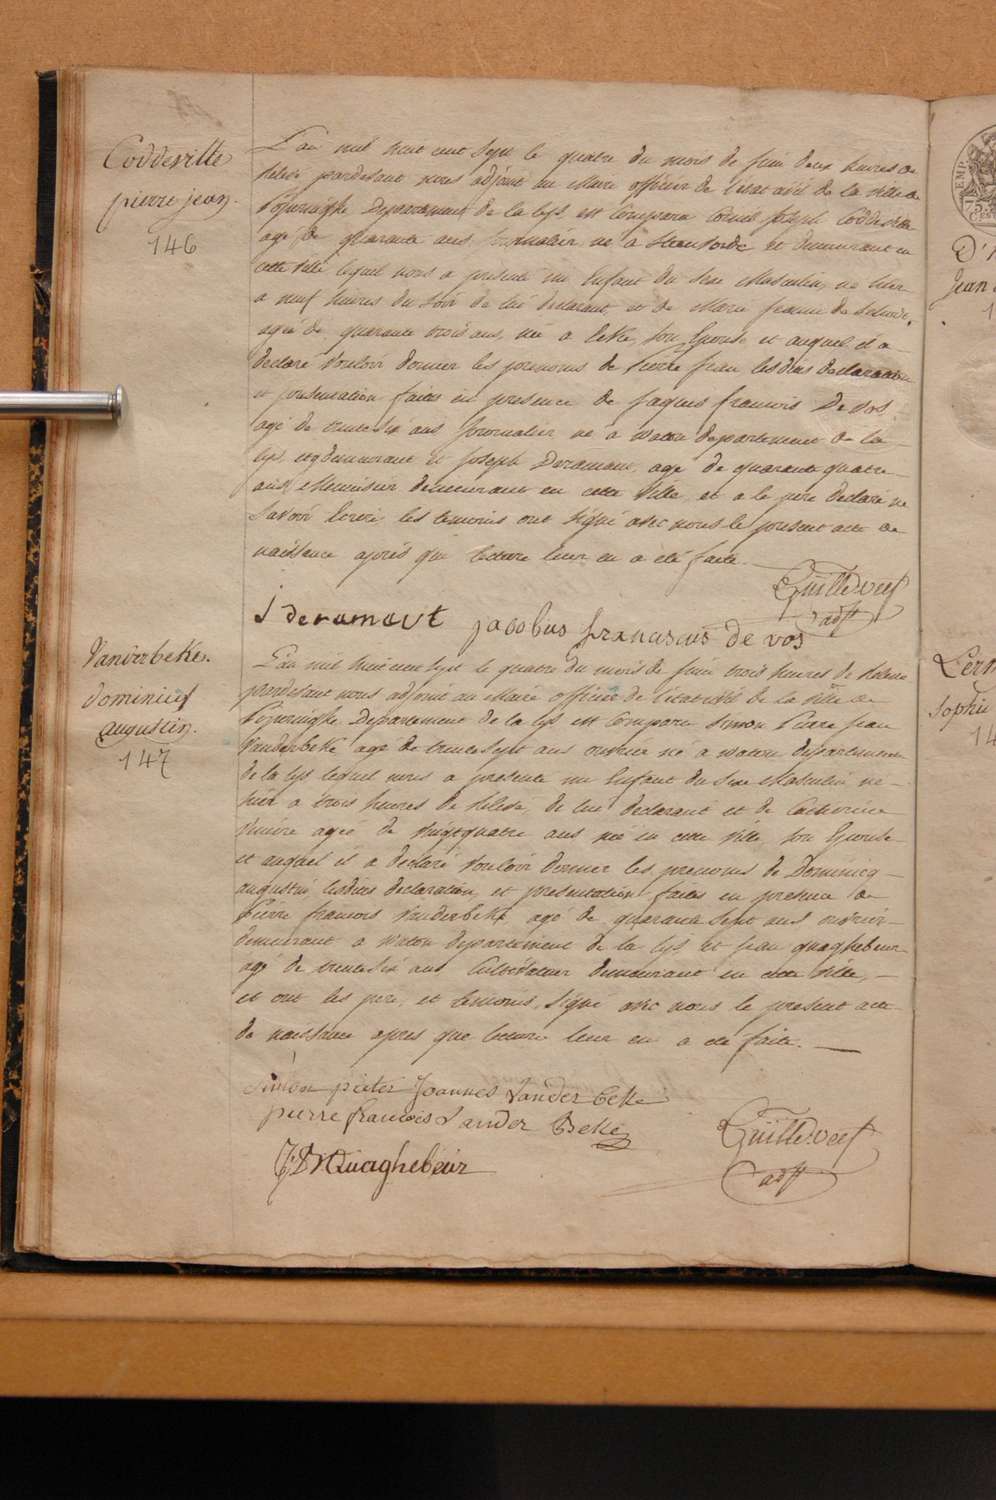 Coddeville
pierre jean.
146
L'an mil huit cent sept le quatre du mois de juin deux heures de
relevé pardevant nous adjoint au Maire officier de l'etat civil de la ville de
Poperinghe Departement de la Lys est Comparu Cornil Joseph Coddeville
agé de quarante ans journalier né a Steenvorde et demeurant en
cette ville lequel nous a présenté un Enfant du Sexe Masculin, né hier
a neuf heures du soir de lui declarant, et de Marie jeanne
agée de quarante trois ans, née a son Epouse et auquel il a
declaré vouloir donner les prenoms de Pierre jean lesdites declaration
et presentation faites en presence de jaques francois De vos
agé de trente six ans journalier né a watou departement de la
Lys, et y demeurant et joseph Deramaut, agé de quarante quatre
ans, Menuisier demeurant en cette ville et a le pere declaré ne
savoir Ecrire, les temoins ont signé avec nous le present acte de
naissance après que lecture leur en a été faite.
Guille.verf
adjt
J deramaut jacobus franciscus de vos
Vanderbeke.
dominicq
augustin.
147
L'an mil huit cent sept le quatre du mois de juin trois heures de relevé
pardevant nous adjoint au Maire officier de l'etat civil de la ville de
Poperinghe Departement de la Lys est Comparu Simon Pierre jean
Vanderbeke agé de trente sept ans ouvrier né a watou departement
de la Lys lequel nous a presenté un Enfant du Sexe Masculin né
hier a trois heures de relevé, de lui declarant et de Catherine
agée de vingt quatre ans née en cette ville, son Epouse
et auquel il a declaré vouloir donner les prenoms de Dominicq
augustin lesdites declaration, et presentation faites en presence de
Pierre francois Vanderbeke agé de quarante sept ans ouvrier
demeurant a watou departement de la Lys et jean quaghebeur
agé de trente six ans Cultivateur demeurant en cette ville,
et ont les pere, et temoins, signé avec nous le present acte
de naissance apres que lecture leur en a été faite.
Simon pieter Joannes Vander beke
pierre francois Vander Beke
Guille.verf
Quaghebeur
adjt
EMP.
75
D'
Jean
1
Sophie
14